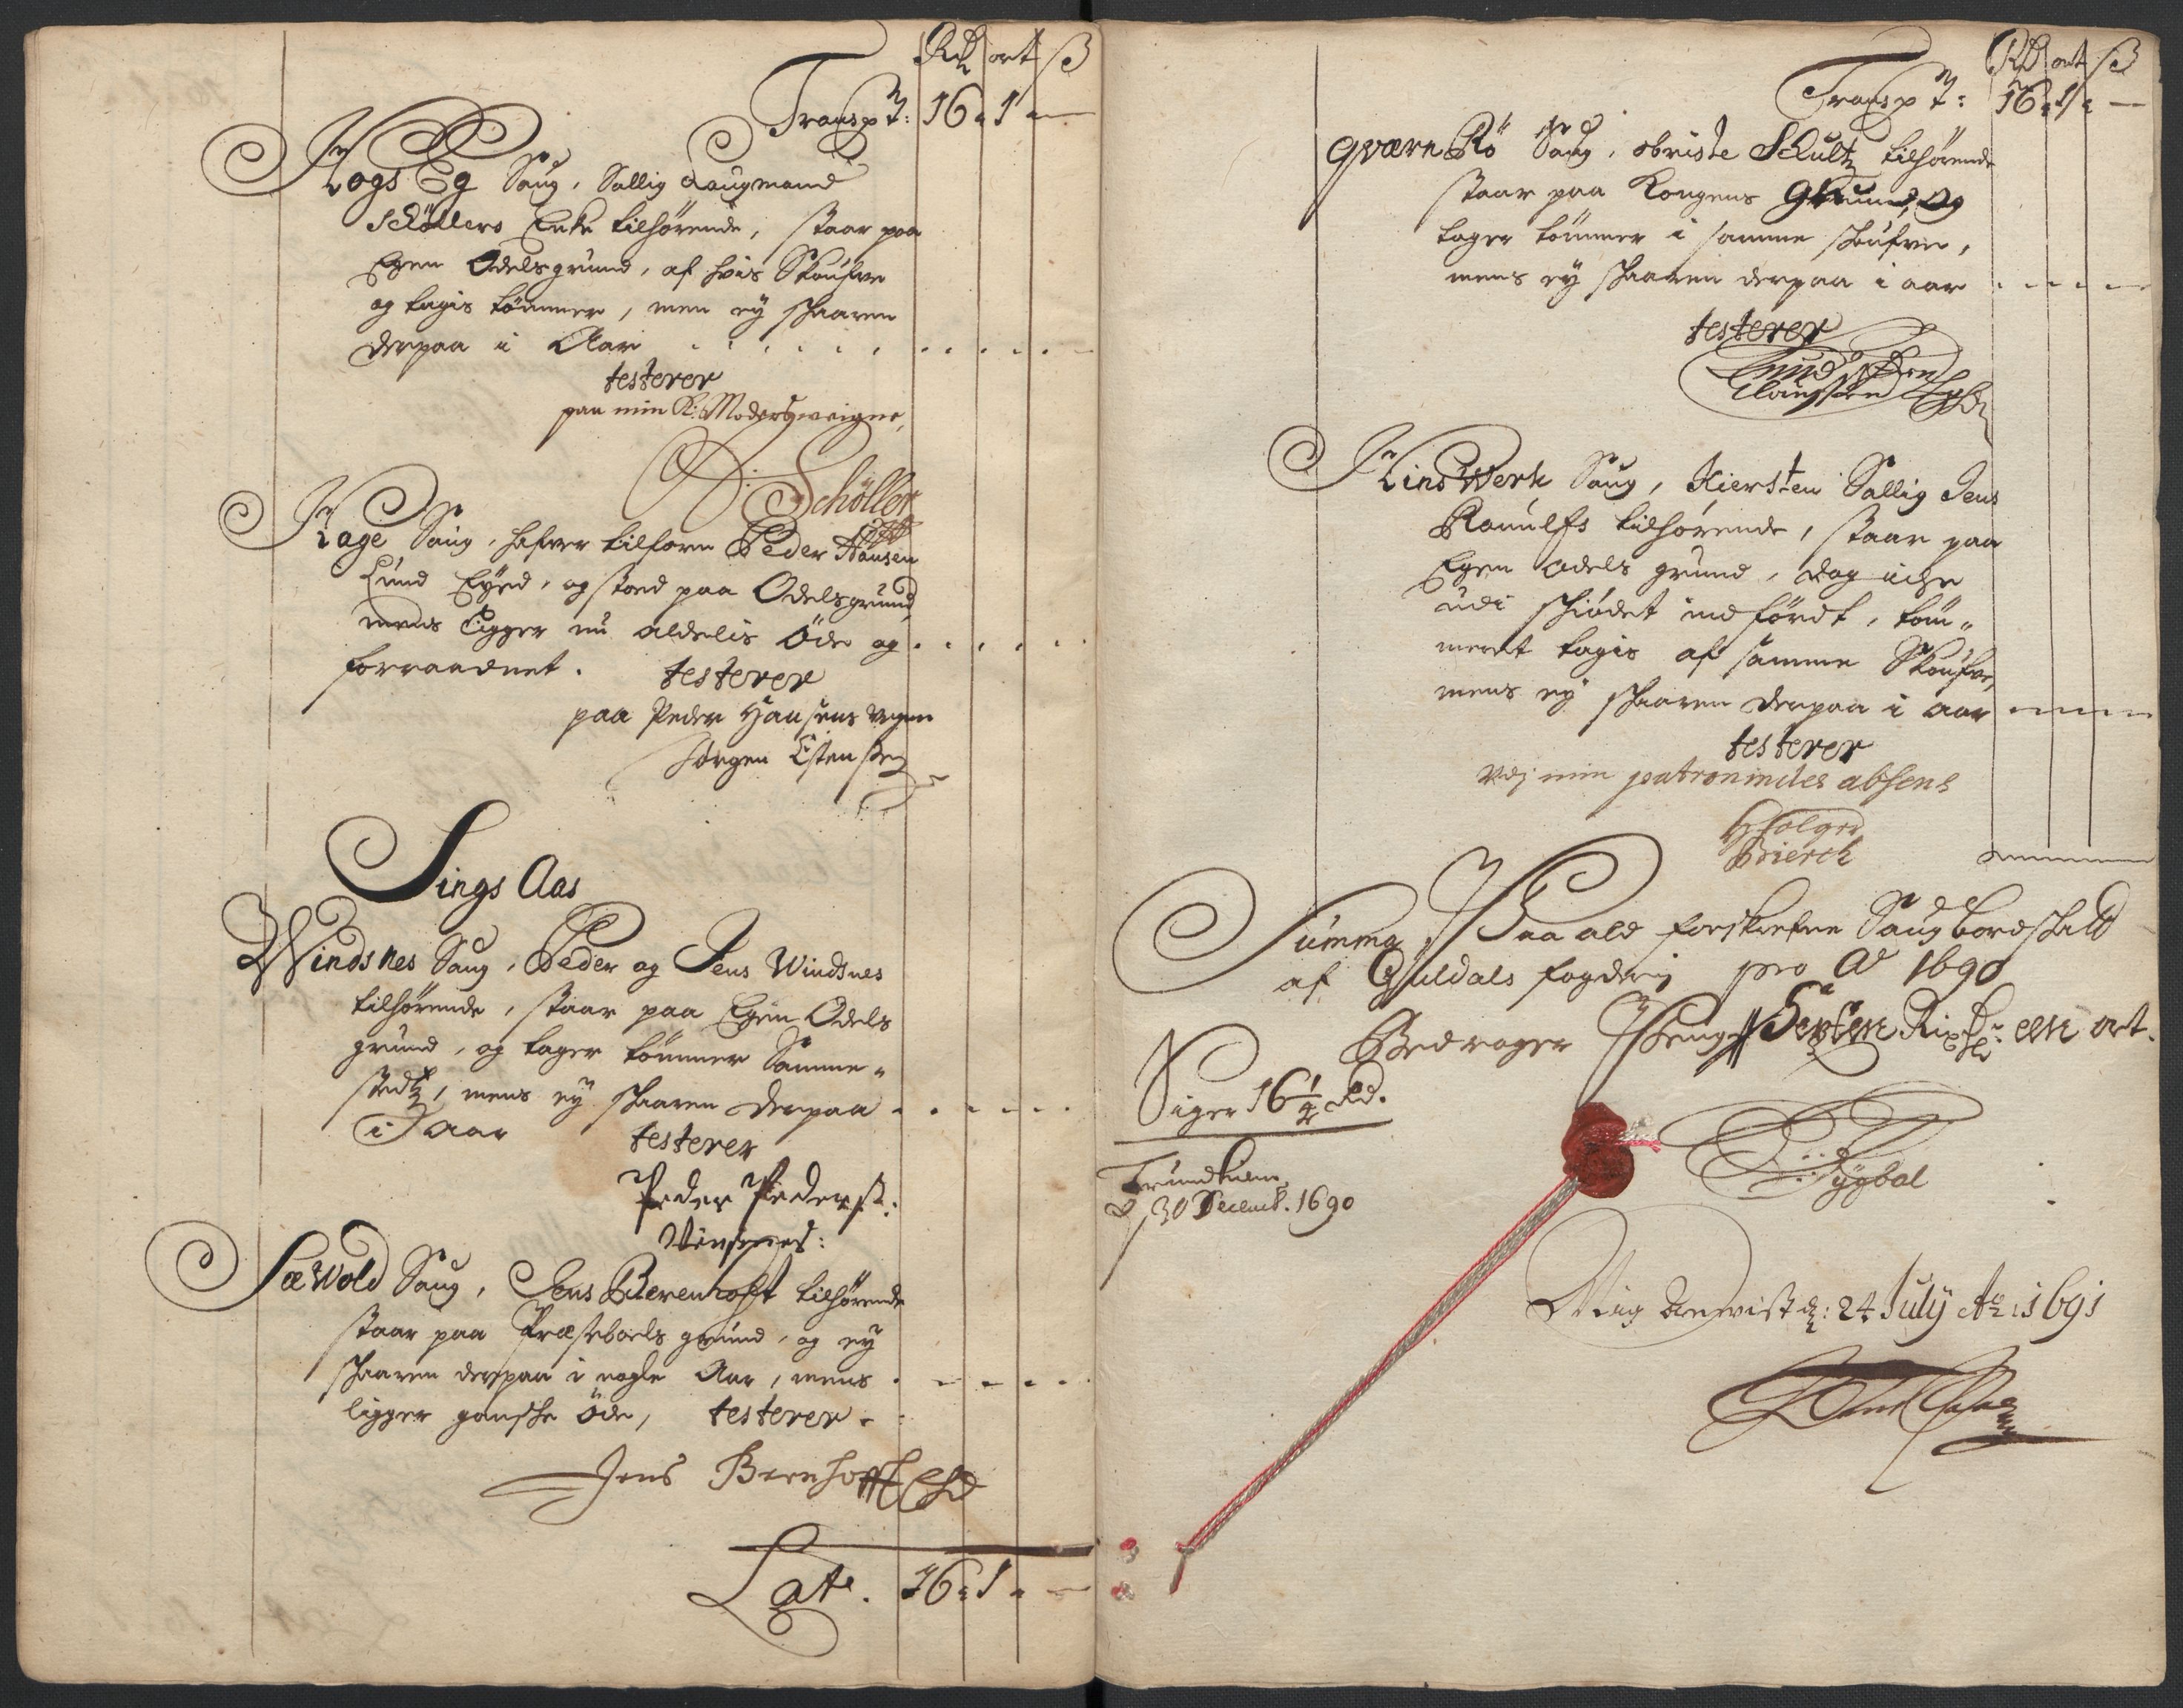 Rdr ort ß
Transpt: 16 „ 1 „ —
Hogs Eg Saug, Sallig Laugmand
Schøllers Enke tilhørende, staar paa
Egen Odelsgrund, af hvis Skoufve
og tagis tømmer, men ey skaaren
derpaa i Aar
testerer
paa min K: Moders weigne,
Schöller
Hage Saug, hafver tilforn Peder Hansen
Lund Eyed, og stoed paa Odelsgrund,
mens ligger nu aldelis øde og
forraadnet. testerer
paa Peder Hansens vegne
Jørgen Estensen
Sings Aas
Windsnes Saug, Peder og Jens Windsnes
tilhørende, staar paa Egen Odels
grund, og tager tømmer Samme-
stedtz, mens ey skaaren derpaa
i Aar testerer
Peder Pedersß:
Vinsnes:
Sæwold Saug, Jens Berenhoft tilhørende
staar paa Præsteboels grund, og ey
skaaren derpaa i nogle Aar, mens
ligger gansche øde, testerer.
Jens Bernhofft
Late. 16 „ 1 „ —
RD ort ß
Transpt: 16 „ 1 „ —
Qværn Rö Saug, obriste Schultz tilhørende
staar paa Kongens Grund, Og
tager tømmer i samme skoufve,
mens ey skaaren derpaa i aar
testerer
Knud
Claussen
Hins Werk Saug, Kiersten Sallig Jens
Ranulfs tilhørende, staar paa
Egen odels grund, dog icke
udi skiødet indførdt, tøm-
meret tagis af samme Skoufve,
mens ey skaaren derpaa i aar
testerer
Vdj min patronindes absens
Holger
Brierch
Summa Paa ald forskrefne Saugbordskatt
af Guldals fogderj pro Ao 1690
Bedrager Penge Sexten Rixdr: een ort.
Siger 16 1/4 Rd.
Trundhiem
d 30 Decemb. 1690
Sygbal
Mig anvist d: 24 July Ao 1691